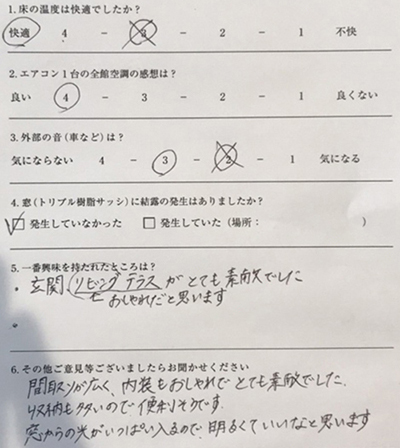 1. 床の温度は快適でしたか?
快適 4 － 3 － 2 － 1 不快
2. エアコン1台の全館空調の感想は?
良い 4 － 3 － 2 － 1 良くない
3. 外部の音(車など)は?
気にならない 4 － 3 － 2 － 1 気になる
4. 窓(トリプル樹脂サッシ)に結露の発生はありましたか?
☑ 発生していなかった □ 発生していた(場所: )
5. 一番興味を持たれたところは?
・ 玄関、リビングテラスがとても素敵でした
おしゃれだと思います
・
6. その他ご意見等ございましたらお聞かせください
間取りが広く、内装もおしゃれでとても素敵でした.
収納も多いので便利そうです.
窓からの光がいっぱい入るので、明るくていいなと思います